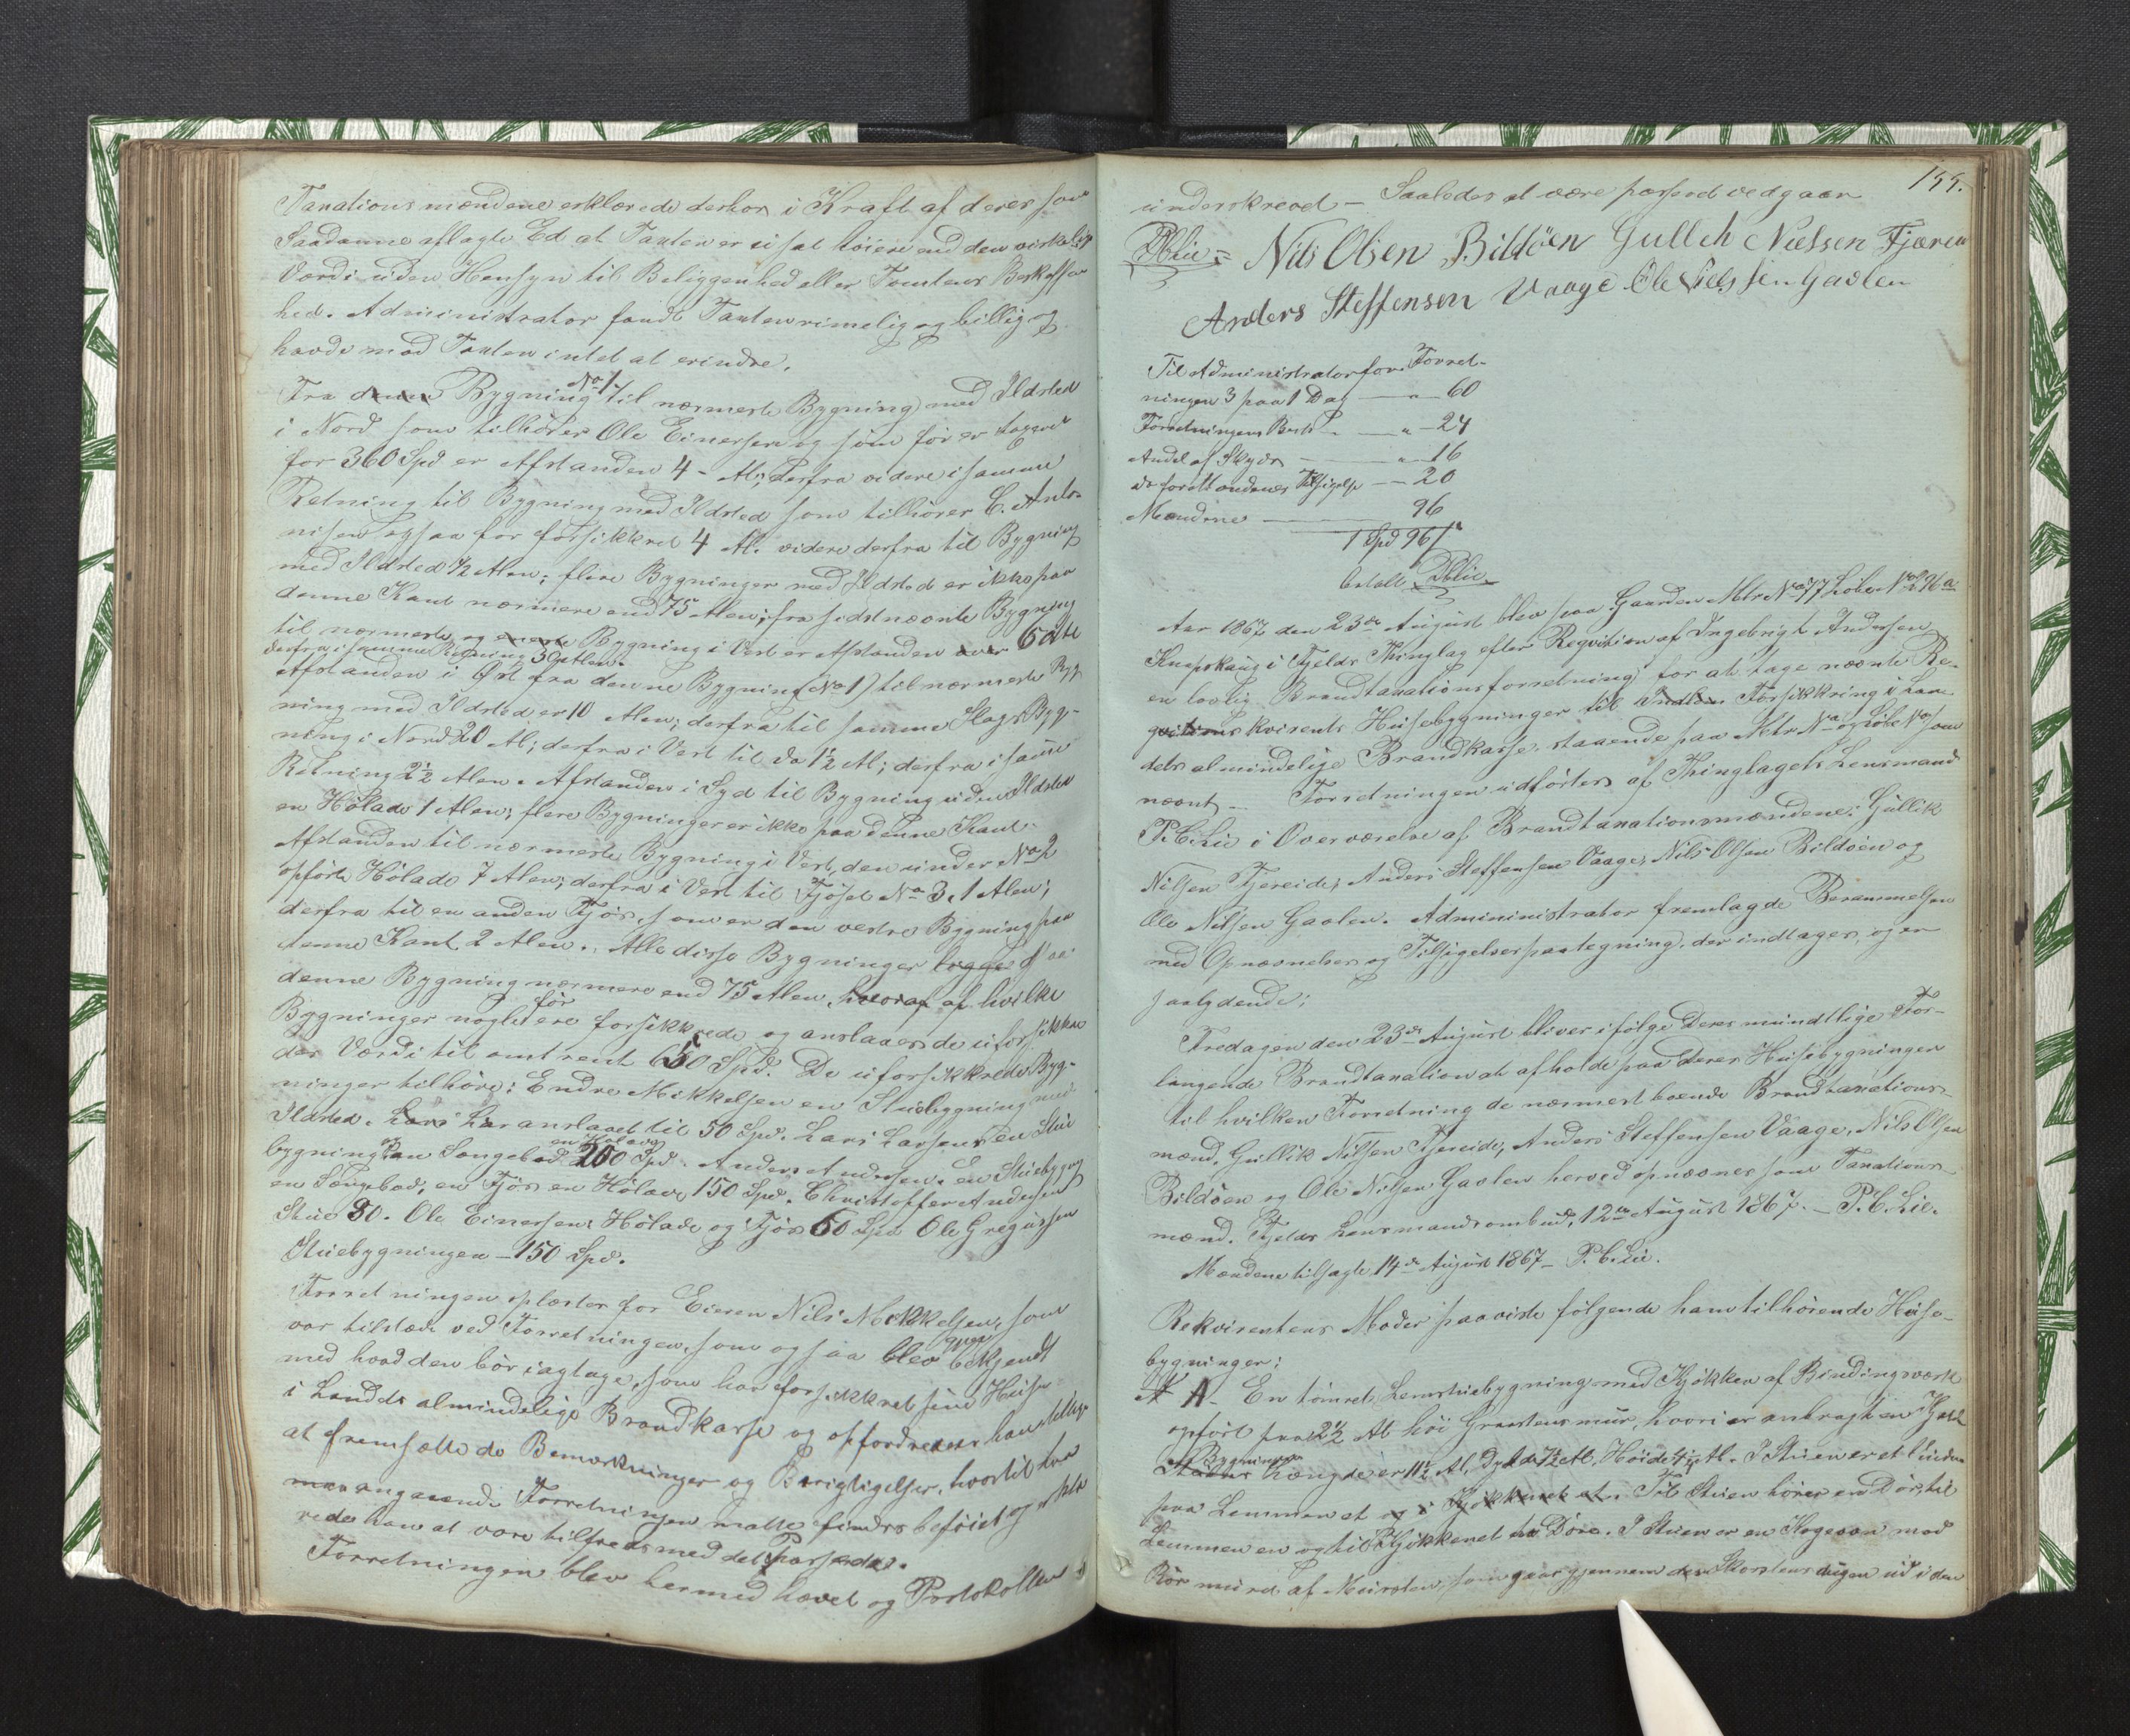 Taxationsmændene erklærede derhos i Kraft af deres som
Saadanne aflagte Ed at Taxten er ei sat høiere end den virkelige
Værdi uden Hensyn til Beliggenhed eller Tomtens Beskaffen
hed. Administrator fandt Taxten rimelig og billig og
havde mod Taxten intet at erindre.
Fra denne Bygning No 1 til nærmeste Bygning med Ildsted
i Nord som tilhører Ole Einersen og som før er taxeret
for 360 Spd er Afstanden 4 - Al; derfra videre i samme
Retning til Bygning med Ildsted som tilhører C. Anto-
nisen ogsaa før forsikkret 4 Al. videre derfra til Bygning
med Ildsted 1/2 Alen; flere Bygninger med Ildsted er ikke paa
denne Kant nærmere end 75 Alen; fra sidstnævnte Bygning
til nærmeste og eneste Bygning i Vest er Afstanden over 6 Al
derfra i samme Retning 30 Alen.
Afstanden i Øst fra denne Bygning (No 1) til nærmeste Byg
ning med Ildsted er 10 Alen; derfra til samme Slags Byg-
ning i Nord 20 Al; derfra i Vest til do 1 1/2 Al; derfra i samme
Retning 2 1/2 Alen. Afstanden i Syd til Bygning uden Ildsted
en Hølade 1 Alen; flere Bygninger er ikke paa denne Kant.
Afstanden til nærmeste Bygning i Vest, den under No 2
opførte Hølade 7 Alen; derfra i Vest til Fjøset No 3, 1 Alen;
derfra til en anden Fjøs, som er den vestre Bygning paa
denne Kant 2 Alen. Alle disse Bygninger ligger paa
denne Bygning nærmere end 75 Alen, hvoraf af hvilke
Bygninger nogle før ere forsikkrede og anslaaes de uforsikkre
des Værdi til omtrent 650 Spd. De uforsikkrede Byg-
ninger tilhøre: Endre Mikkelsen en Stuebygning med
Ildsted. Lars Lar anslaaet til 50 Spd. Lars Larsens en Stue
bygning og en Sengebod en Hølade 200 Spd. Anders Andersen. En Stuebygning
en Sengebod, en Fjøs en Hølade 150 Spd. Christoffer Andersen
Stue 30. Ole Einersens Hølade og Fjøs 60 Spd Ole Gregussen
Stuebygningen - 150 Spd.
Forretningen oplæstes for Eieren Nils Mikkelsen, som
var tilstede ved Forretningen, som ogsaa blev gjort bekjendt
med hvad den bør iagtage, som har forsikkret sine Huse
i Landets almindelige Brandkasse og opfordredes han tillige
at fremsætte de Bemærkninger og Berigtigelser, hvortil han
man angaaende Forretningen maatte findes beføiet og erklæ
rede han at være tilfreds med det Passerede.
Forretningen blev hermed hævet og Protokollen
155.
underskrevet - Saaledes at være passeret vedgaar
PCLie = Nils Olsen Bildöen Gullek Nielsen Fjæreid
Anders Steffensen Vaage Ole Niels sen Gaslen
Til Administrator for Forret-
ningen 3 paa 1 Dag - " - 60
Forretningens - " - 24
Andel af Skyds - " - 16
do for Mændenes Tilsigelse - 20
Mændene - 96
1 Spd 96 s
betalt PCLie
Aar 1867 den 23de August blev paa Gaarden Mtr No 77 Løbe No 296a
Knapskaug i Fjelds Thinglag efter Reqvisition af Ingebrigt Andersen
en lovlig Brandtaxationsforretning for at tage nævnte Re-
qvitions kvirents Husebygninger til Indtn Forsikkring i Lan
dets almindelige Brandkasse, staaende paa Mtr No og Løbe No som
nævnt - Forretningen udførtes af Thinglagets Lensmand
P.C.Lie i Overværelse af Brandtaxationsmændene: Gullik
Nilsen Fjereide, Anders Steffensen Vaage, Nils Olsen Bildöen og
Ole Nilsen Gaslen. Administrator fremlagde Berammelsen
med Opnævnelses og Tilsigelsespaategning, der indtages, og er
saalydende:
Fredagen den 23de August bliver ifølge Deres mundtlige For-
langende Brandtaxation at afholde paa Deres Husebygninger
til hvilken Forretning de nærmest boende Brandtaxations-
mænd, Gullik Nilsen Fjereide, Anders Steffensen Vaage, Nils Olsen
Bildöen og Ole Nilsen Gaslen herved opnævnes som Taxations-
mænd. Fjelds Lensmandsombud, 12te August 1867. - P.C.Lie.
Mændene tilsagte 14de August 1867 - P.C.Lie.
Rekvirentens Moder paaviste følgende ham tilhørende Huse-
bygninger:
A - En tømret Lemstuebygning med Kjøkken af Bindingsværk
opført paa 2 1/2 Al høi Graastensmur, hvori er anbragt en Kjel
Bygningens
Længde er 11 1/2 Al, Dybde 7 1/2 Al, Høide 4 1/2 Al. I Stuen er et Vindue
paa Lemmen et og i Kjøkkenet et. Til Stuen hører en Dør, til
Lemmen en og til Kjøkkenet to Døre. I Stuen er en Kogeovn med
Rør muret af Mursten, som gaar gjennem den Skorstens ud i den